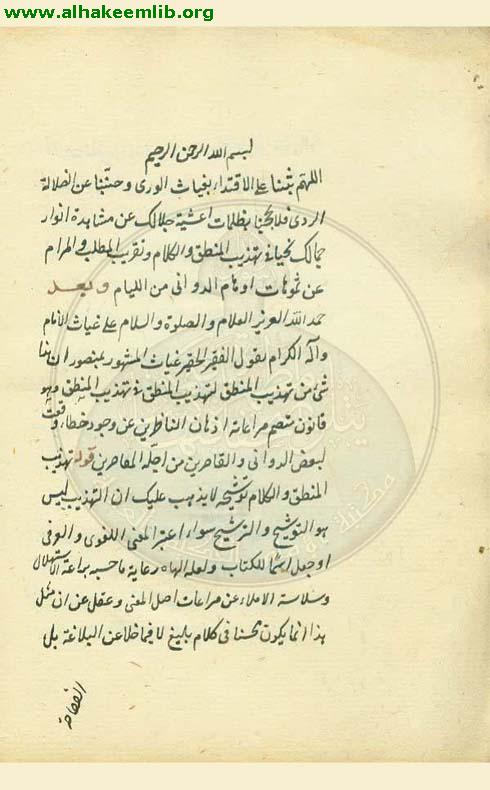 www.alhakeemlib.org
بسم الله الرحمن الرحيم
اللهم ثبتنا على الاقتداء بغياث الورى وجنبنا عن الضلالة
الردى فلا تحجبنا بظلمات اغشية جلالك عن مشاهدة انوار
جمالك نحيا فى تهذيب المنطق والكلام وتقريب المطلب والمرام
عن تموهات اوهام الدوانى من الليام وبعد
حمد الله العزيز العلام والصلوة والسلام على غياث الأنام
وآله الكرام يقول الفقير الحقير غياث المشهور بمنصور ان هذا
شئ من تهذيب المنطق لتهذيب المنطق فى تهذيب المنطق وهو
قانون تعصم مراعاته اذهان الناظرين عن وجوه خطاء وقعت
لبعض الدوانى والقاصرين من اجلة المعاصرين قوله تهذيب
المنطق والكلام توشيحه لا يذهب عليك ان التهذيب ليس
هو التوشيح والترشيح سواء اعتبر المعنى اللغوى والعرفى
او جعل اسما للكتاب ولعله الهاه رعاية ما حسبه براعة الاستهلال
وسلاسة الاملاء عن مراعات اصل المعنى وغفل عن ان مثل
هذا انما يكون محسنا فى كلام بليغ لا فيما خلا عن البلاغة بل
الفصاحة